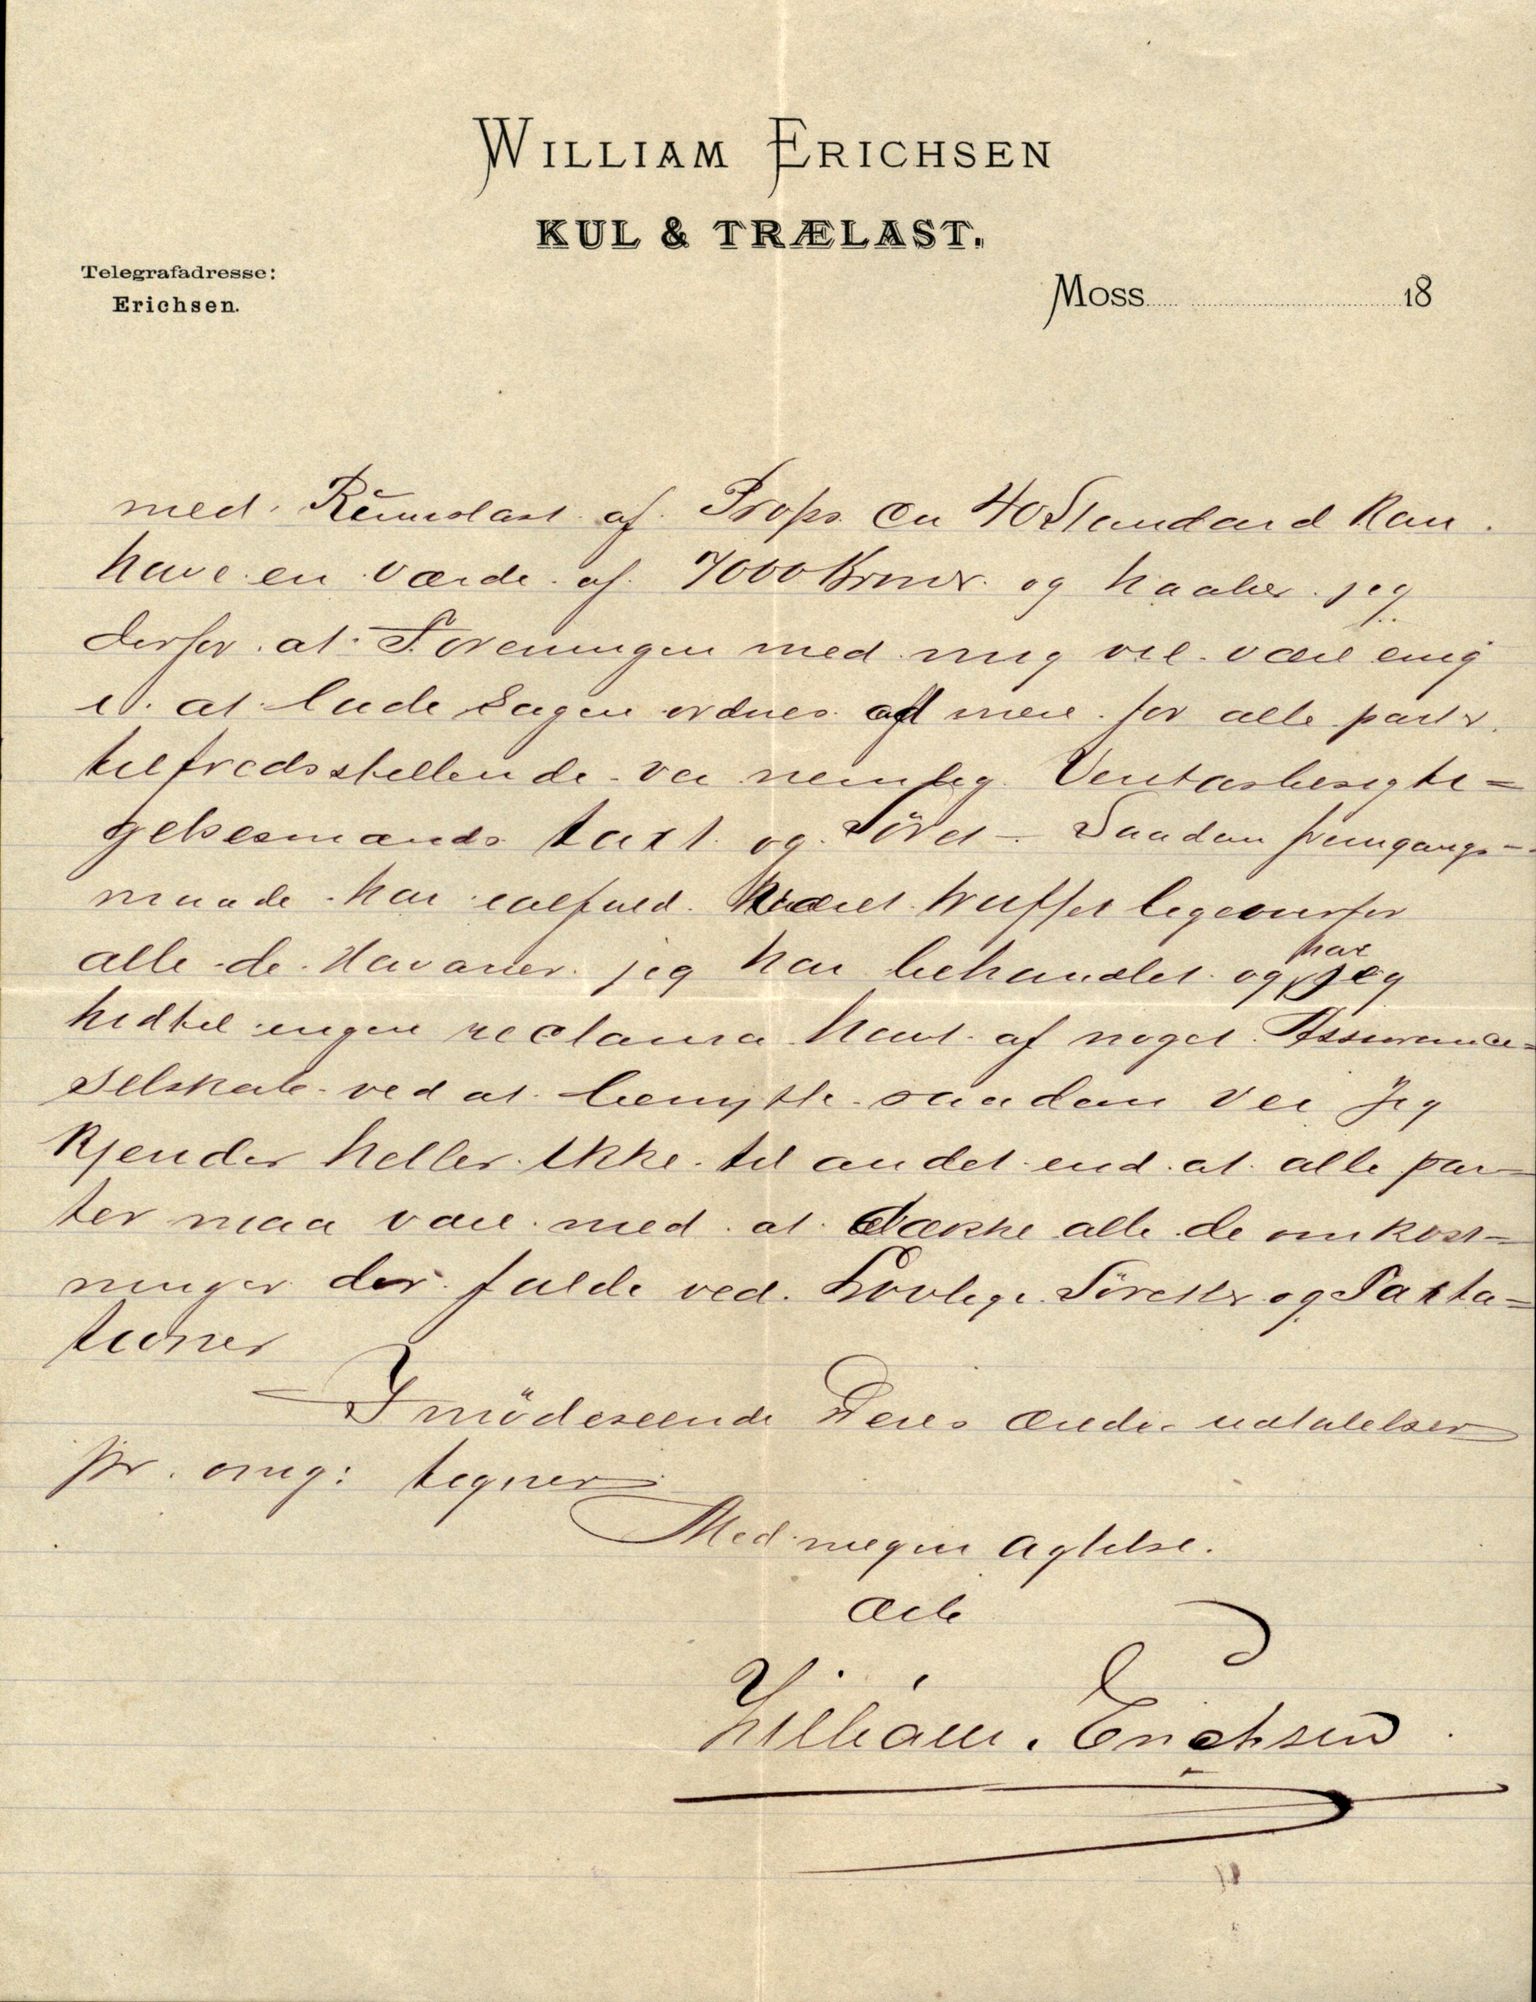 WILLIAM ERICHSEN
KUL & TRÆLAST.
Telegrafadresse:
Erichsen.
Moss 18
med Rumslast af Props ca 40 Standard kan
have en værde af 7000 Kroner og haaber jeg
derfor at Foreningen med mig vil være enig
i at lade Sagen ordnes at mere for alle parter
tilfredsstellende vei nemlig besigti=
gelsesmænds taxt og Söret – Saadan fremgangs-
maade har ialfald været truffet ligeoverfor
alle de Havarier jeg har behandlet og har jeg
hidtil ingen reclama havt af noget Assurance=
selskab ved at benytte saadan vei Jeg
kjender heller ikke til andet end at alle par=
ter maa være med at dække alle de omkost=
ninger der falde ved Lovlige Söretter og Taxta=
tioner
Imödeseende Deres ærede udtalelser
pr. omg: tegner
Med megen agtelse.
William Erichsen